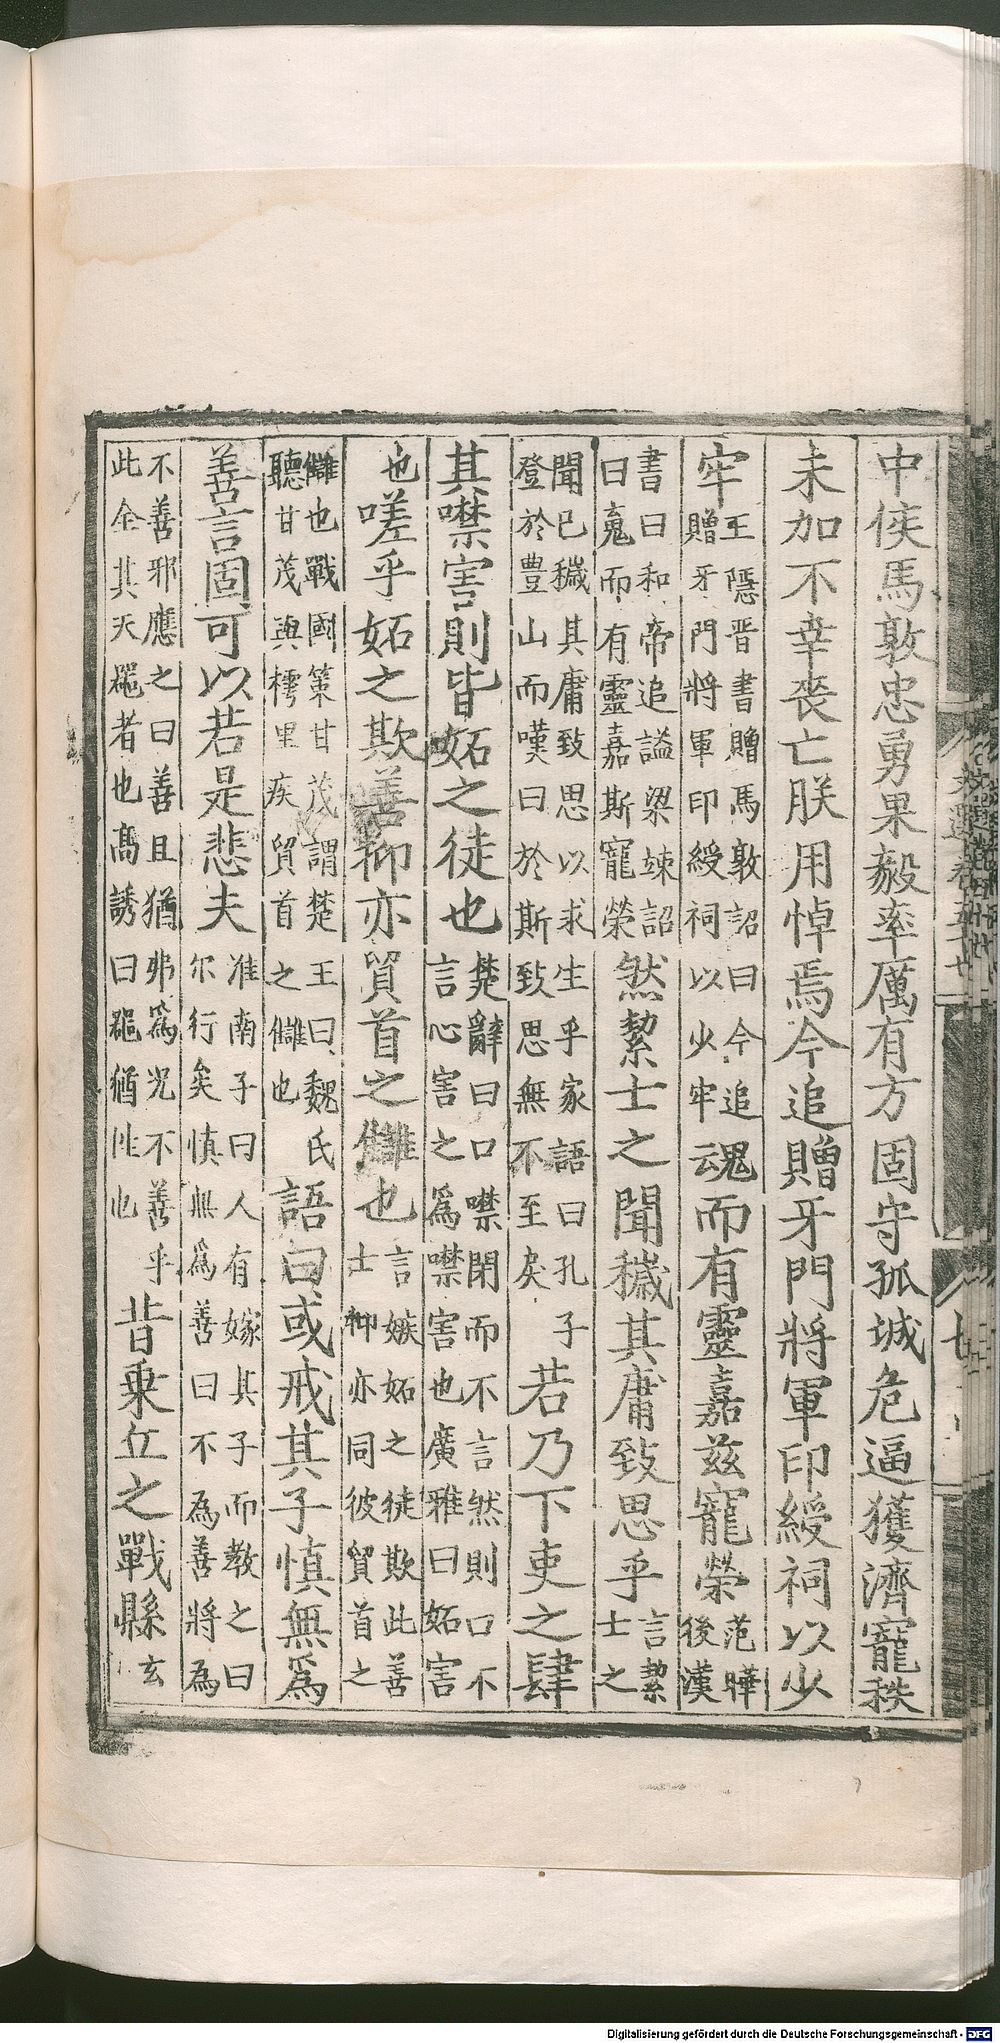 中侯馬敦忠勇果毅率厲有方固守孤城危逼獲濟寵秩
未加不幸喪亡朕用悼焉今追贈牙門將軍印綬祠以少
牢王隱晉書贈馬敦詔曰今追贈牙門將軍印綬祠以少牢魂而有靈嘉茲寵榮范曄後漢
書曰和帝追謚梁竦詔曰䰟而有靈嘉斯寵榮然絜士之聞穢其庸致思乎言絜士之
聞已穢其庸致思以求生乎家語曰孔子登於豊山而嘆曰於斯致思無不至矣若乃下吏之肆
其噤害則皆妬之徒也楚辭曰口噤閉而不言然則口不言心害之爲噤害也廣雅曰妬害
也嗟乎妬之欺善抑亦貿首之讎也言嫉妬之徒欺此善士抑亦同彼貿首之
讎也戰國策甘茂謂楚王曰魏氏聽甘茂與樗里疾貿首之讎也語曰或戒其子慎無爲
善言固可以若是悲夫淮南子曰人有嫁其子而教之曰尔行矣慎無爲善曰不為善將為
不善邪應之曰善且猶弗爲况不善乎此全其天噐者也高誘曰噐猶性也昔乗丘之戰縣玄
文選卷五十七
七
Digitalisierung gefördert durch die Deutsche Forschungsgemeinschaft - DFG